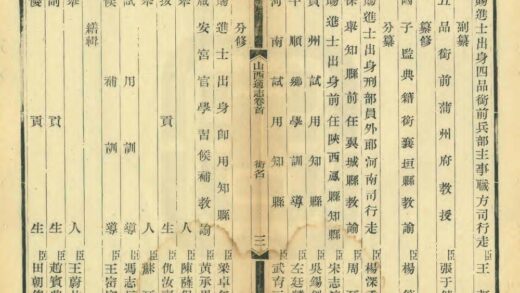 賜進士出身四品銜前兵部主事職方司行走臣王
副纂
五品銜前蒲州府教授臣張于
纂修
國子監典籍銜襄垣縣教諭臣楊
分纂
賜進士出身刑部員外郎河南司行走臣楊深
保舉知縣前任翼城縣教諭臣周
賜進士出身前任陝西鳳縣知縣臣宋志
貴州試用知縣臣吳錫
平順鄉學訓導臣左廷
河南試用知縣臣武育
山西通志卷首 銜名 三
分修
賜進士出身即用知縣臣梁卓
咸安宮官學習候補教諭臣黃承
舉人臣陳
拔貢生臣仇汝
舉人臣蘇
試用訓導臣馮志
候補訓導臣王富
繕輯
舉人臣王蔚
副貢生臣趙賓
優貢生臣田朝